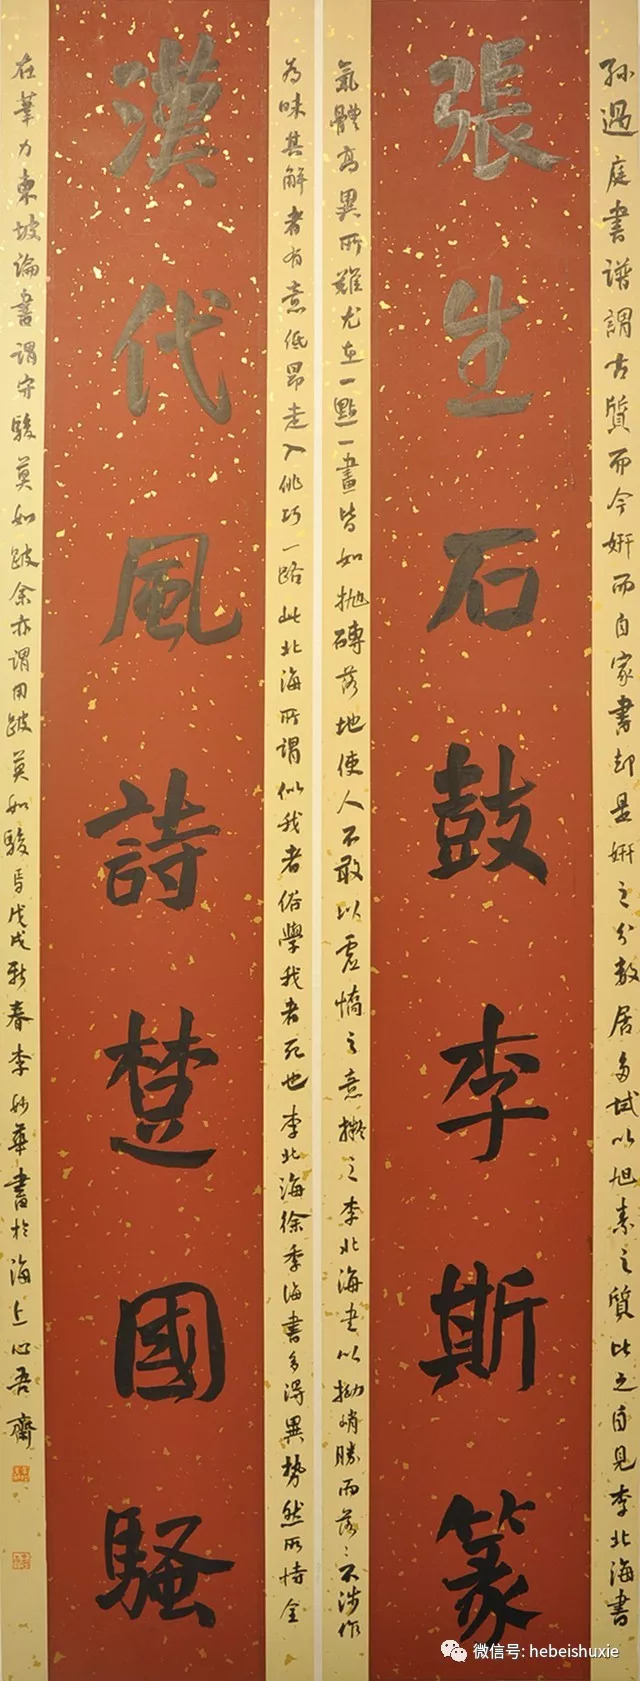 孫過庭書譜謂古質而今妍而自家書却是妍之分數居多試以旭素之質比之自見李北海書
張生石鼓李斯篆
氣體高異所難尤在一點一畫皆如拋磚落地使人不敢以虛憍之意擬之李北海書以拗峭勝而落落不涉作
為昧其解者有意低昂走入佻巧一路此北海所謂似我者俗學我者死也李北海徐季海書多得異勢然所恃全
漢代風詩楚國騷
在筆力東坡論書謂守駿莫如跛余亦謂用跛莫如駿焉戊戌新春李妙華書於海上心吾齋
微信号: hebeishuxie